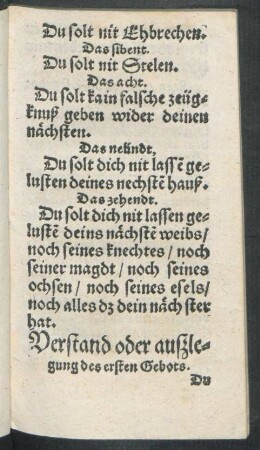 Du solt nit Ehbrechen.
Das sibent.
Du solt nit Stelen.
Das acht.
Du solt kain falsche zeüg-
knuß geben wider deinen
nächsten.
Das neündt.
Du solt dich nit lassē ge-
lusten deines nechstē hauß.
Das zehendt.
Du solt dich nit lassen ge-
lustē deins nächstē weibs/
noch seines knechtes / noch
seiner magdt / noch seines
ochsen / noch seines esels/
noch alles dz dein nächster
hat.
Verstand oder außle-
gung des ersten Gebots.
Du